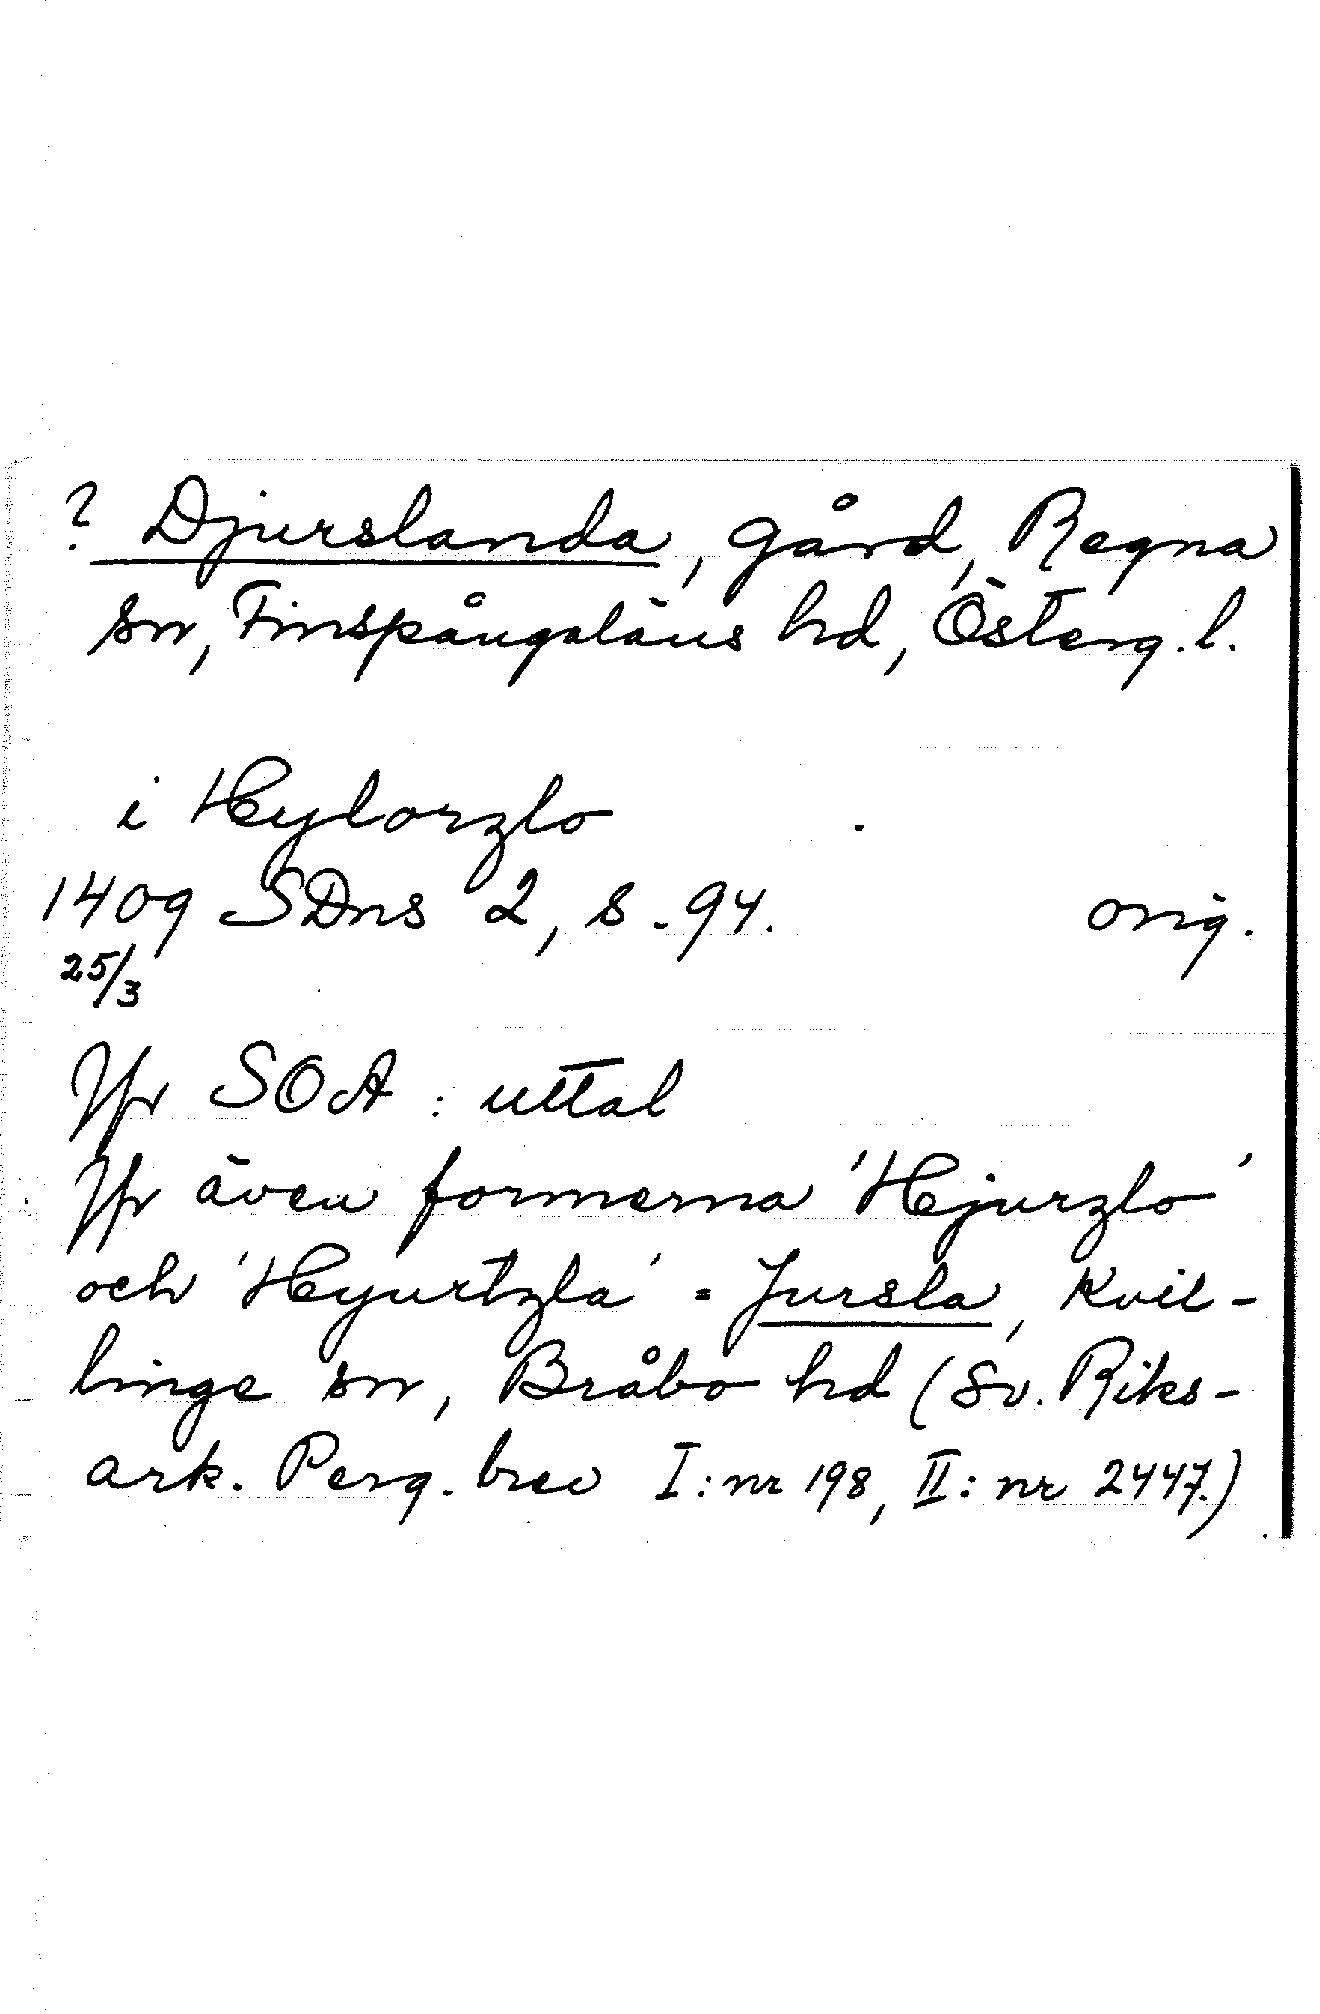 ? Djurslanda, gård, Regna
sn, Finspångaläns hd, Österg.l.
i Hylorzlo
1409 SDns 2, s. 94. orig.
25/3
Jfr SOA: uttal
Jfr även formerna 'Hjurzlo'
och 'Hyurtzla' = Jursla, Kvil-
linge sn, Bråbo hd (Sv. Riks-
ark. Perg. brev I: nr 198, II: nr 2447.)